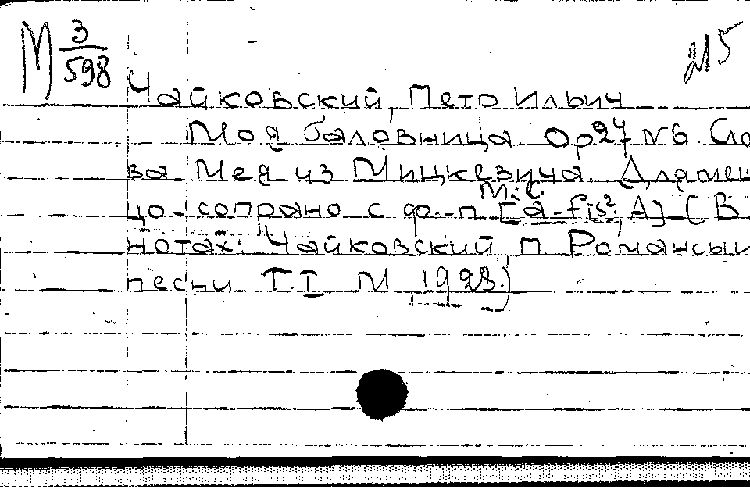 М 3/598
215
Чайковский, Петр Ильич
Моя баловница. Op 27 № 6. Сло-
ва Мея из Мицкевича. Для мец-
М.С.
цо-сопрано с ф.-п. [a-fis², A] (В
нотах: Чайковский П. Романсы и
песни Т. I М 1928.)